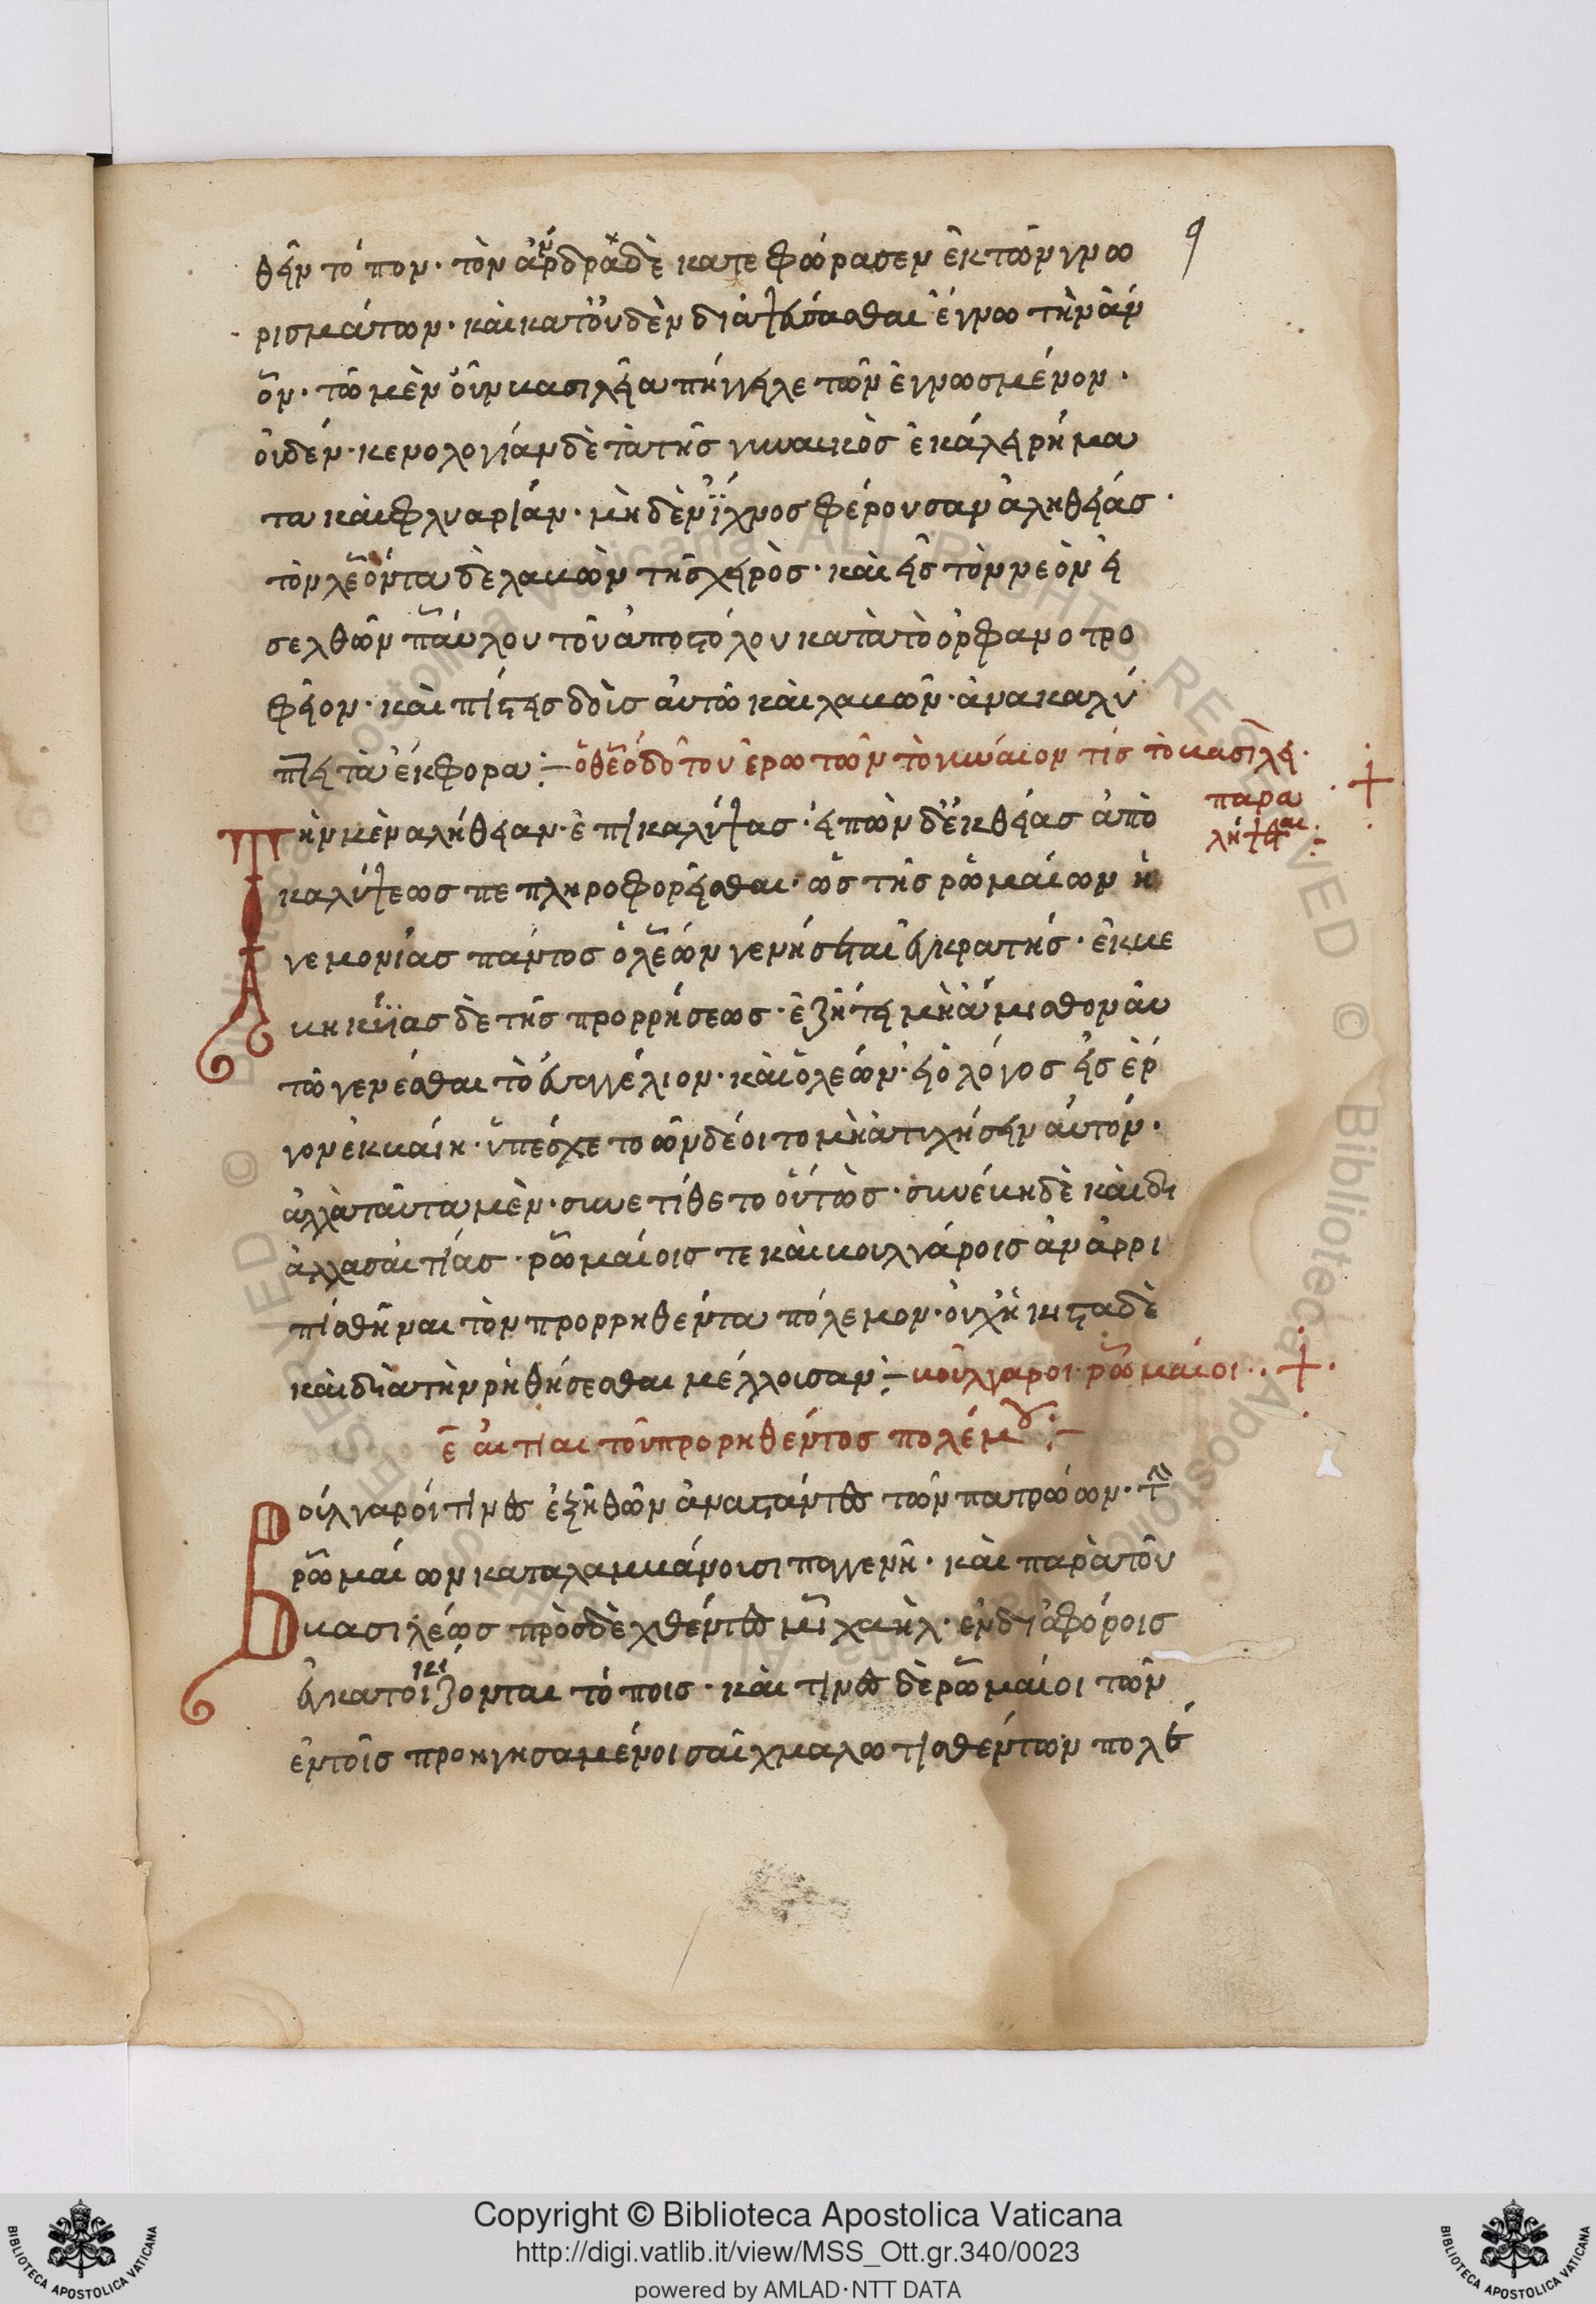 9
θεῖν τόπον· τὸν ἄνδρα δὲ κατεφώρασεν ἐκ τῶν γνω
ρισμάτων· καὶ κατ' οὐδὲν διαψεύσασθαι ἔγνω τὴν ἄν
ον· τῶ μὲν οὖν βασιλεῖ ἀπήγγειλε τῶν ἐγνωσμένον·
οὐδέν· κενολογίαν δὲ τὰ τῆς γυναικὸς ἐκάλει ρήμα
τα καὶ φλυαρίαν· μὴ δὲν ἴχνος φέρουσαν ἀληθείας·
τὸν λέοντα δὲ λαβὼν τῆς χειρὸς· καὶ εἰς τὸν νεὸν εἰ
σελθὼν παύλου τοῦ ἀποστόλου κατὰ τὸ ὀρφανοτρο
φεῖον· καὶ πίστεις δοὺς αὐτῶ καὶ λαβὼν· ἀνακαλύ
πτει τὰ ἔκφορα :— ὁ θεόδοτου ἐρωτῶν τὸ γύναιον τίς τὸ βασίλει·
παρα
λήψεται :-
Τὴν μὲν ἀλήθειαν ἐπικαλύψας· εἰπὼν δ' ἐκ θείας ἀπο
καλύψεως πεπληροφορεῖσθαι· ὡς τῆς ρωμαίων ἡ
γεμονίας πάντος ὁ λέων γενήσεται ἐγκρατής· ἐκβε
βηκυίας δὲ τῆς προρρήσεως· ἐζήτει μὴ ἄμισθον αὐ
τῶ γενέσθαι τὸ εὐαγγέλιον· καὶ ὁ λέων· εἰ ὁ λόγος εἰς ἔρ
γον ἐκβαίη· ὑπέσχετο ὧν δέοιτο μὴ ἀτυχήσειν αὐτόν·
ἀλλὰ ταῦτα μὲν· συνετίθετο οὕτως· συνέβη δὲ καὶ δι
ἄλλας αἰτίας· ρωμαίοις τε καὶ βουλγάροις ἀναρρι
πισθῆναι τὸν προρρηθέντα πόλεμον· οὐχ ἥκιστα δὲ
καὶ διὰ τὴν ρηθήσεσθαι μέλλουσαν :— βούλγαροι ρωμαίοι··
ε αἰτίαι τοῦ προρηθέντος πολέμου :—
Βούλγαροί τινες ἐξ ἠθῶν ἀναστάντες τῶν πατρώων· τὴν
ρωμαίων καταλαμβάνουσι παγγενῆ· καὶ παρὰ τοῦ
βασιλέως προσδεχθέντες μιχαὴλ· ἐν διαφόροις
ἐγκατοικίζονται τόποις· καὶ τινες δὲ ρωμαίοι τῶν
ἐν τοῖς προηγησαμένοις αἰχμαλωτισθέντων πολέ
Copyright © Biblioteca Apostolica Vaticana
http://digi.vatlib.it/view/MSS_Ott.gr.340/0023
powered by AMLAD·NTT DATA